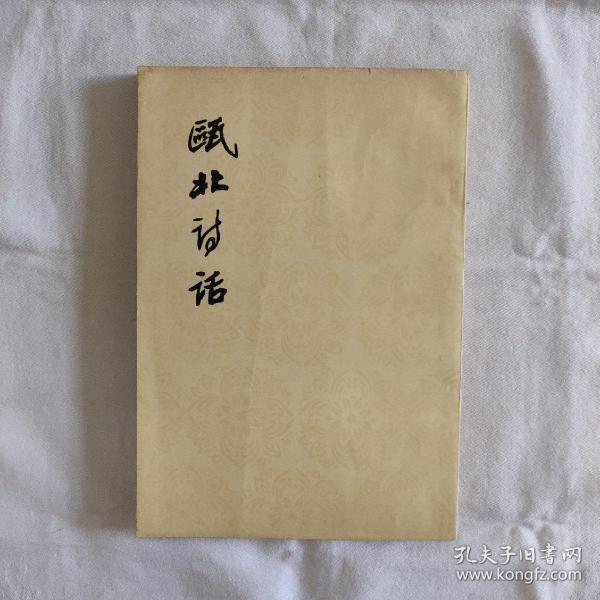 瓯北诗话
孔夫子旧书网
www.kongfz.com